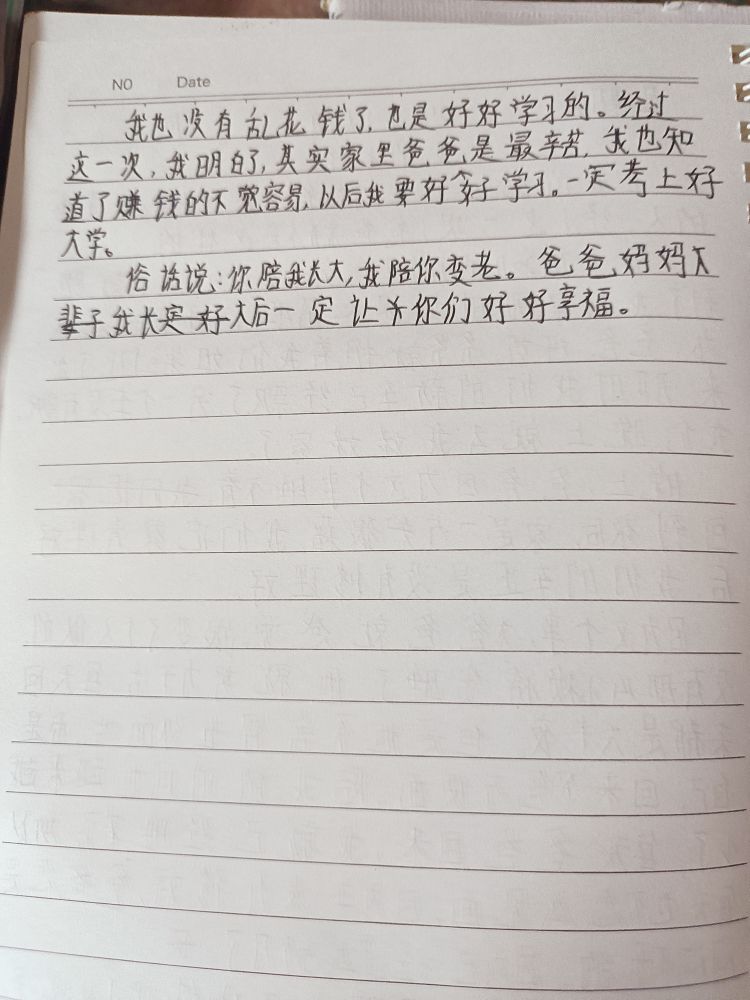 NO Date
我也没有乱花钱了,也是好好学习的。经过
这一次,我明白了,其实家里爸爸是最辛苦,我也知
道了赚钱的不容易,以后我要好好学习。一定考上好
大学。
俗话说:你陪我长大,我陪你变老。爸爸妈妈
辈子我长大后一定让你们好好享福。